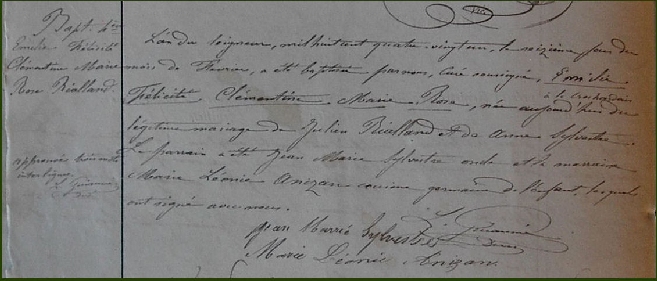 Bapt. 4
Emilie Félicité
Clémentine Marie
Rose Rialland.
L'an du Seigneur, mil huit cent quatre-vingt un, le seizième jour du
mois de Février, a été baptisée par moi, Curé soussigné, Emilie
Félicité Clémentine Marie Rose, née aujourd'hui du
légitime mariage de Julien Rialland et de Anne Sylvestre.
Le parrain a été Jean Marie Sylvestre oncle et la marraine
Marie Léonie Anizan cousine germaine de l'enfant, lesquels
ont signé avec nous.
approuvés trois mots
interlignes.
Jean Marie Sylvestre
Marie Léonie Anizan